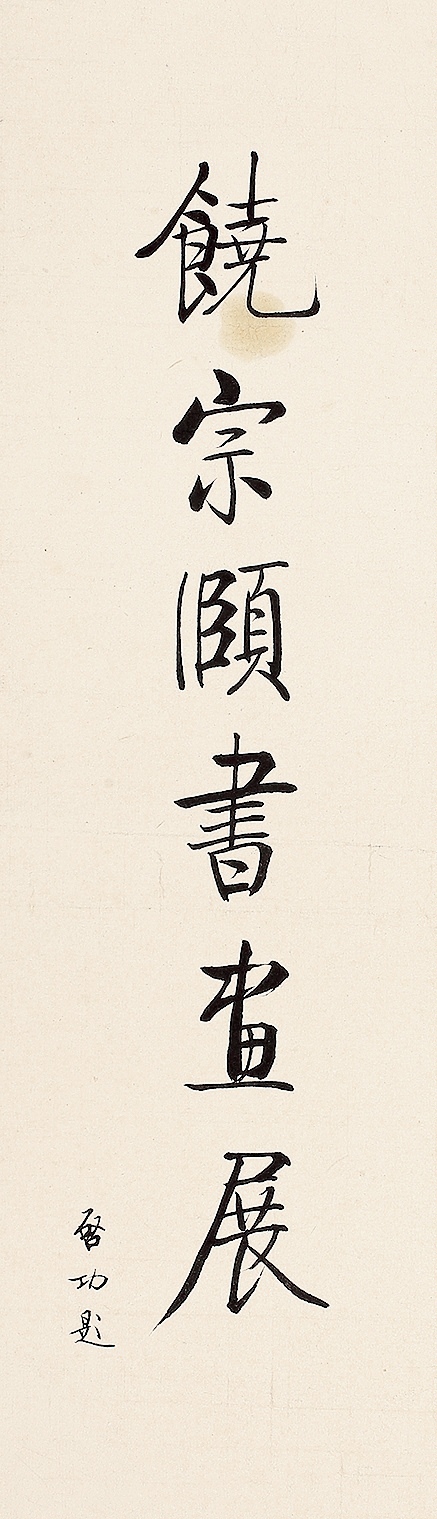 饒宗頤書畫展
啓功題